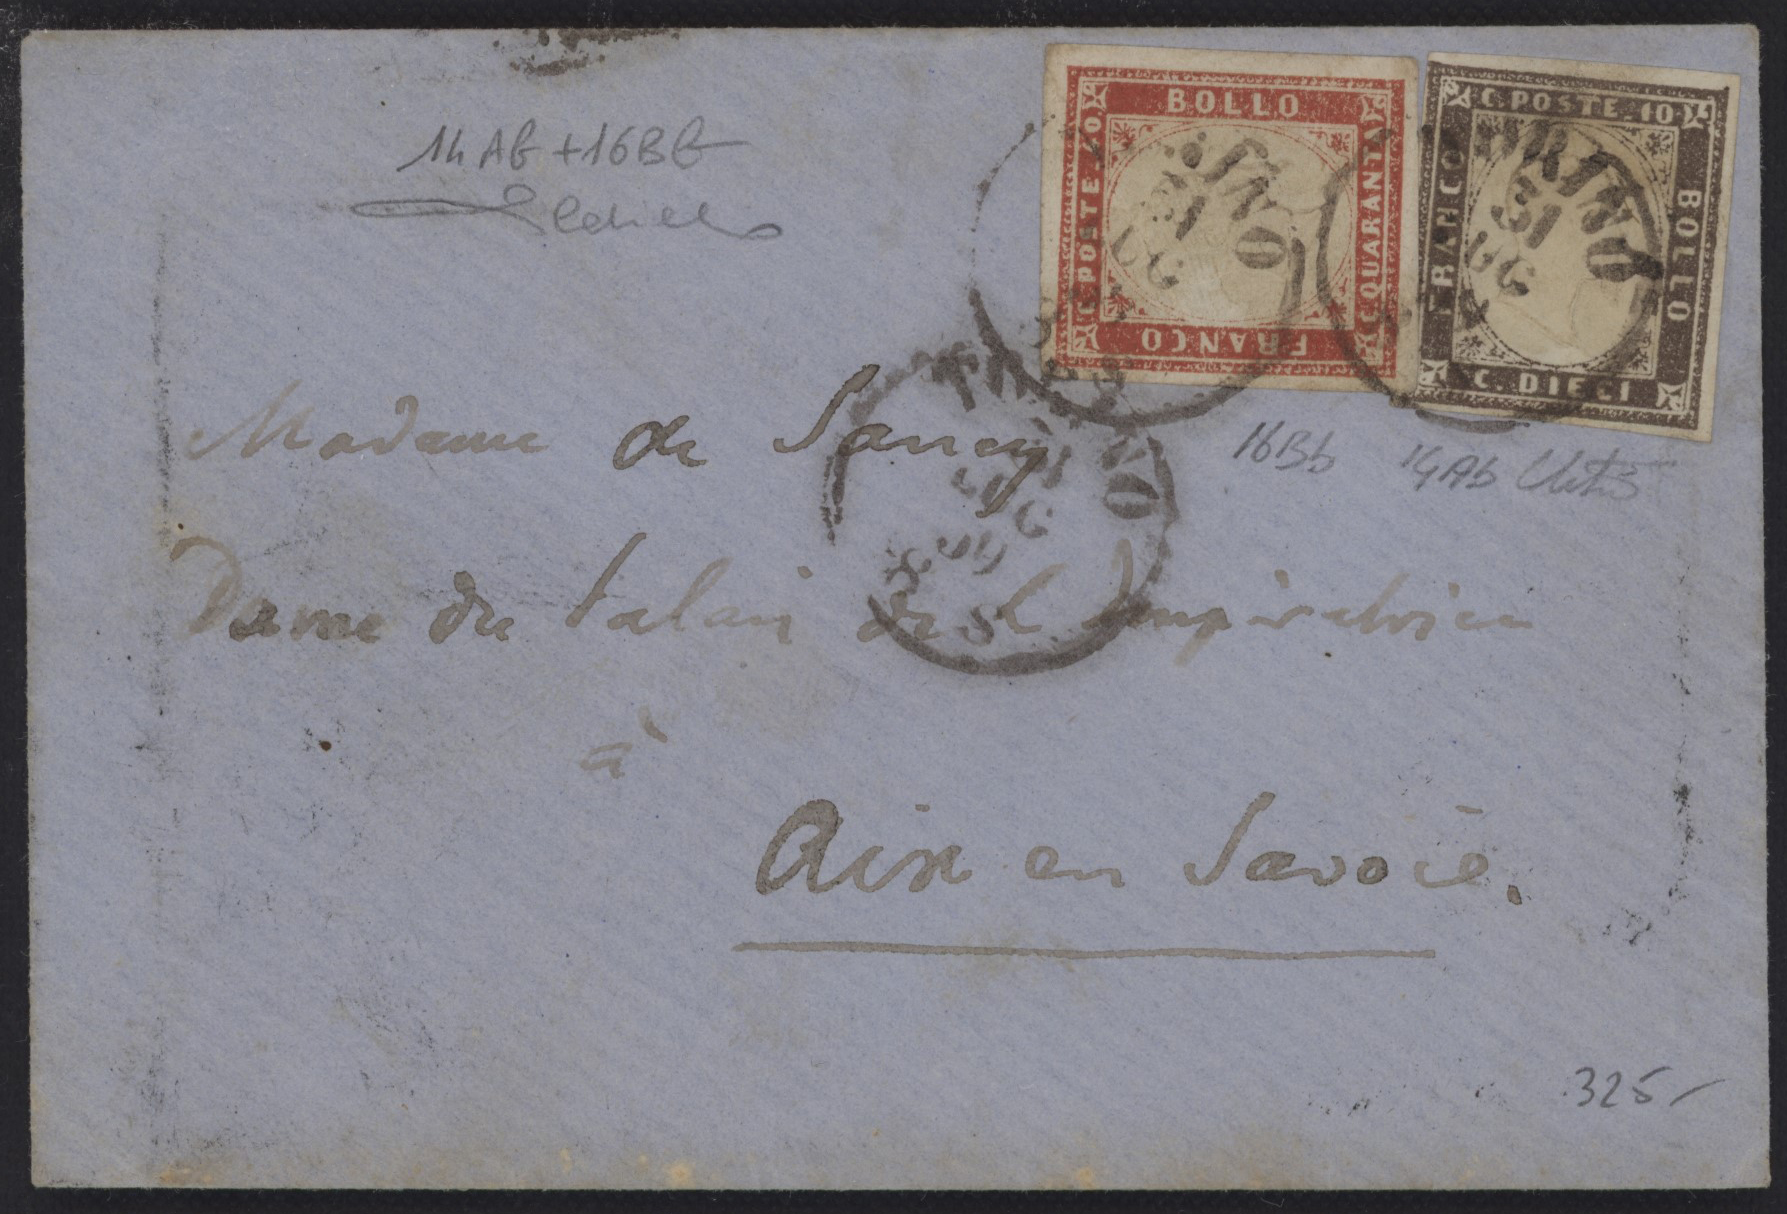 14Ab + 16Bb
BOLLO
C. POSTE 40
C. QUARANTA
FRANCO
C. POSTE 10
FRANCO
BOLLO
C. DIECI
TORINO
31
LUG
TORINO
31
LUG
16Bb 14Ab
TORINO
31
LUG
Madame de Sancy
Dame du Palais de l'Impératrice
à
Aix en Savoie.
325-